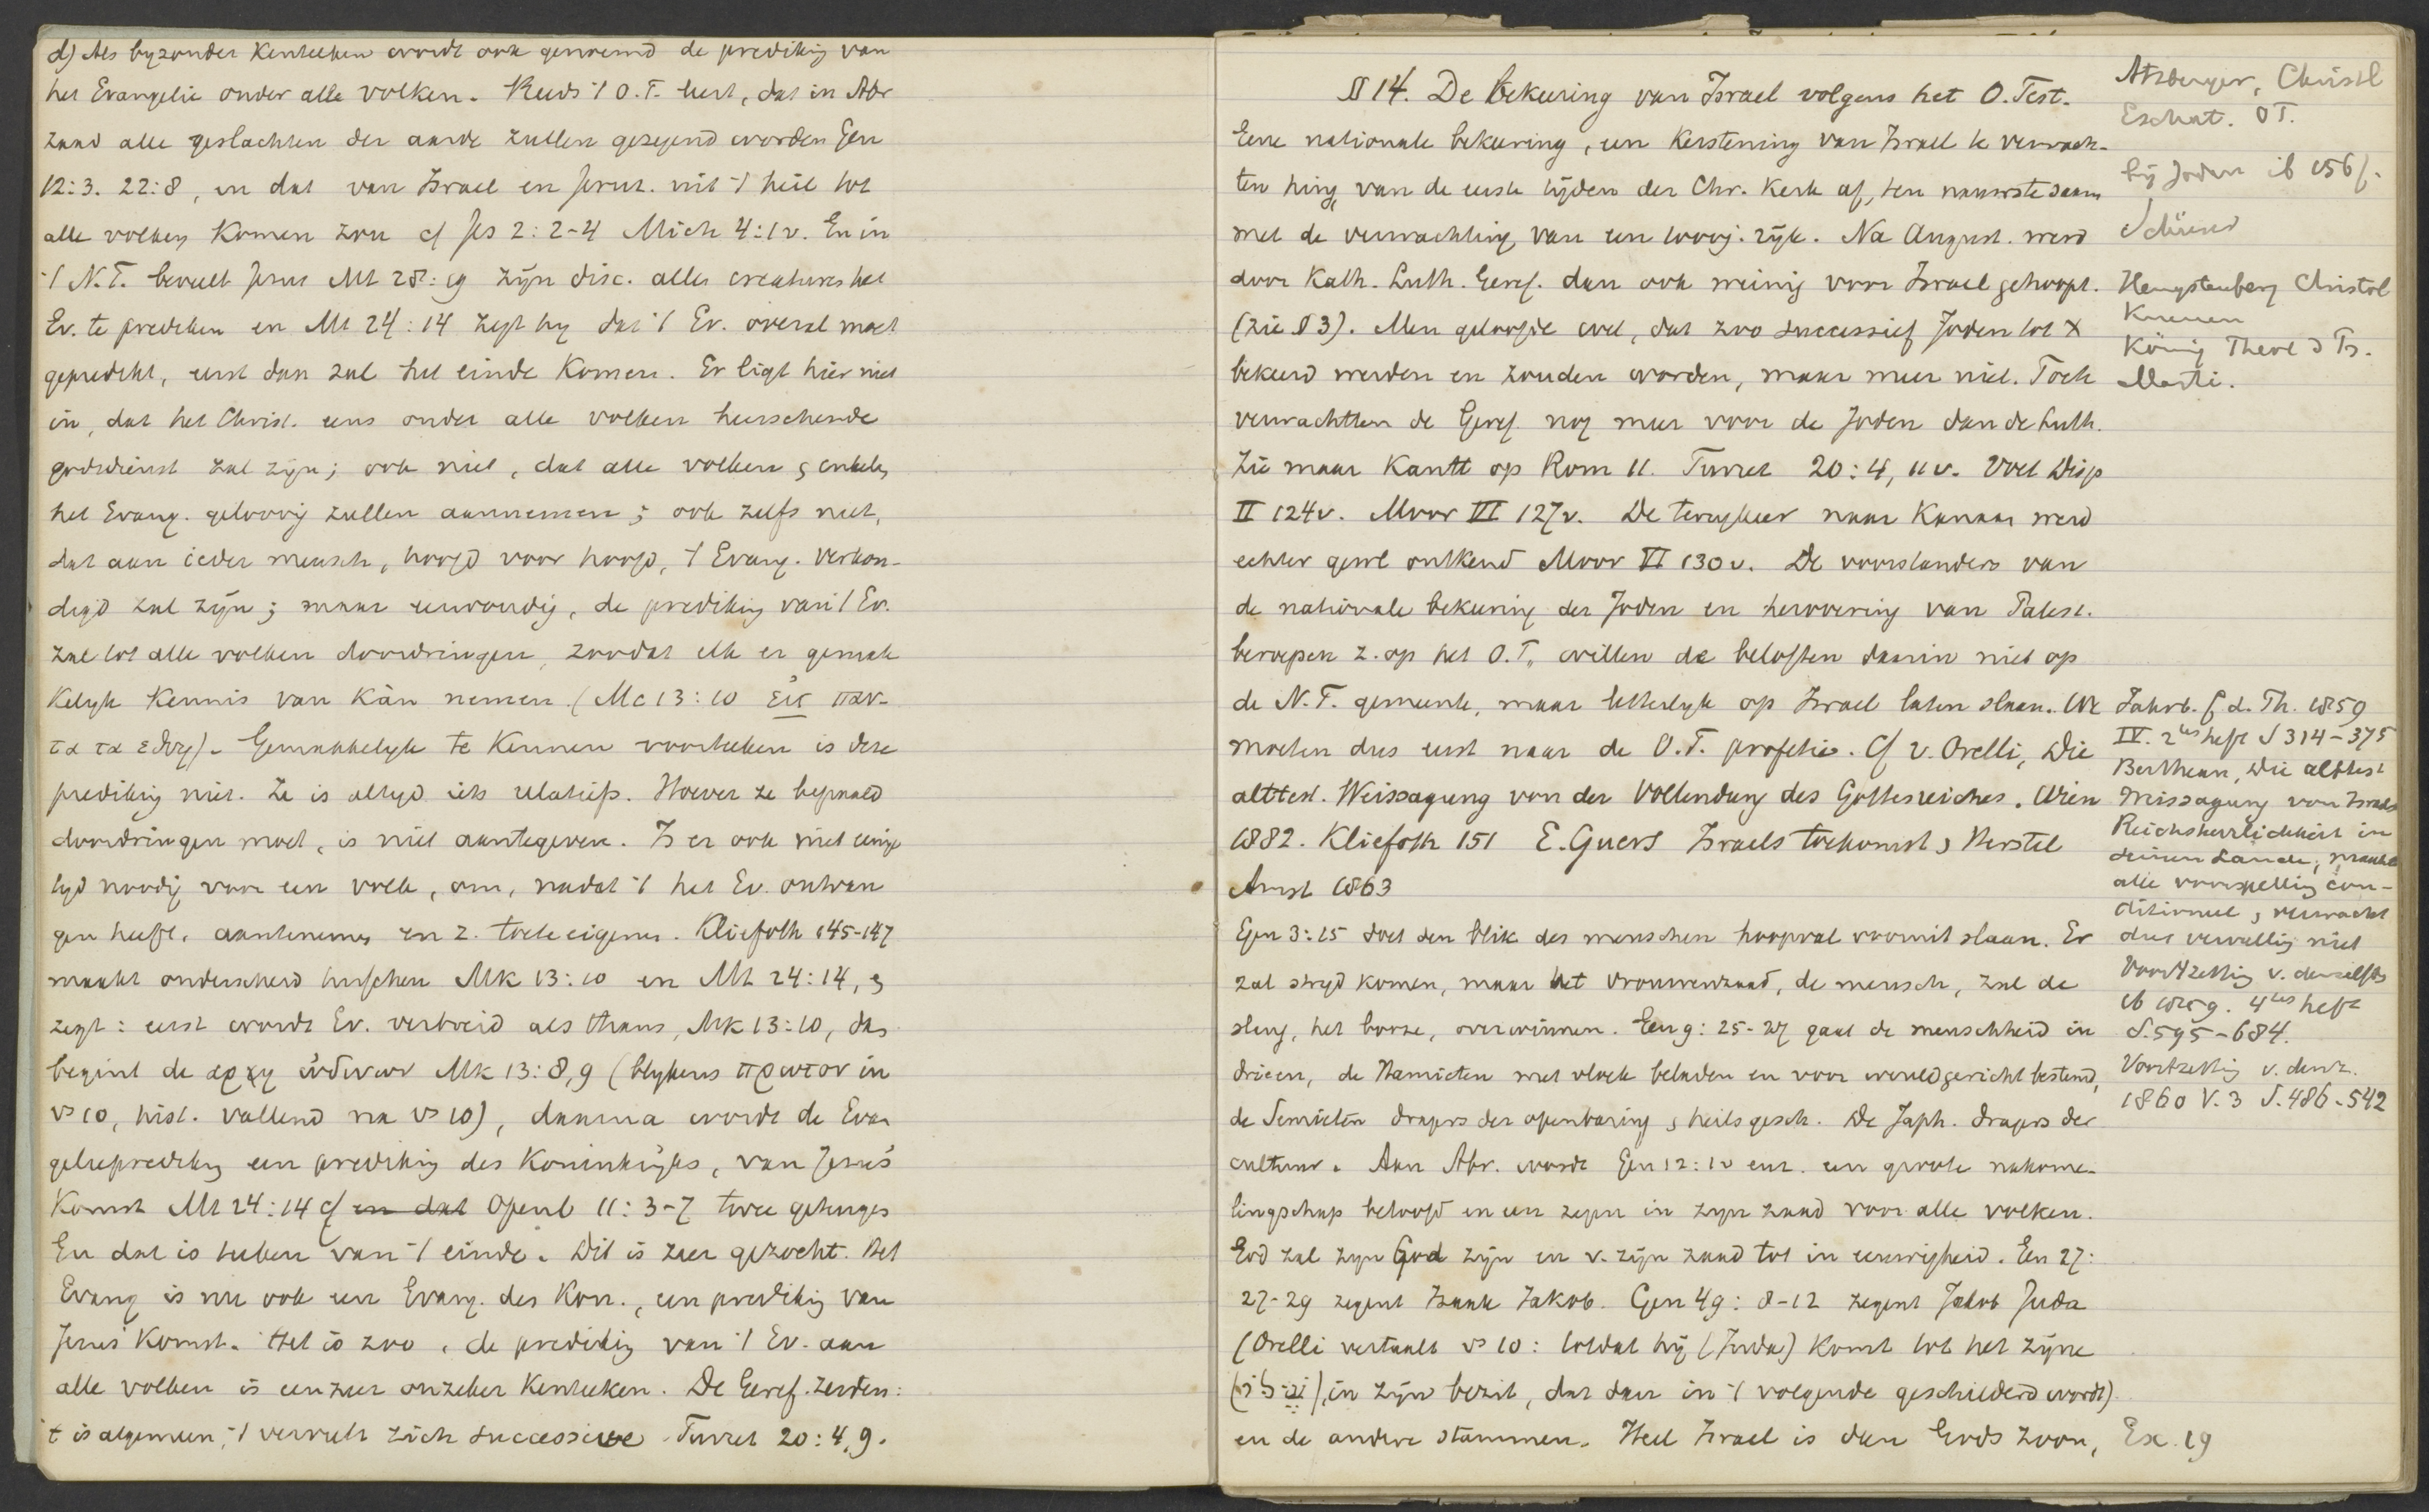 d) Als byzonder Kenteeken wordt ook genoemd de prediking van
het Evangelie onder alle volken. Reeds 't O.T. leert, dat in Abr
zaad alle geslachten der aarde zullen gezegend worden Gen
12:3. 22:8, en dat van Israel en Jeruz. uit 't heil tot
alle volken komen zou cf Jes 2:2-4 Mich 4:1v. En in
't N.T. beveelt Jezus Mt 28:19 zijn disc. allen creaturen het
Ev. te prediken en Mt 24:14 zegt hy dat 't Ev. overal moet
gepredikt, eerst dan zal het einde komen. Er ligt hier niet
in, dat het Christ. eens onder alle volken heerschende
godsdienst zal zijn; ook niet, dat alle volken & enkelen
het Evang. geloovig zullen aannemen; ook zelfs niet,
dat aan ieder mensch, hoofd voor hoofd, 't Evang. verkon-
digd zal zijn; maar eenvoudig, de prediking van 't Ev.
zal tot alle volken doordringen, zoodat elk er gemak
kelyk kennis van kàn nemen. (Mc 13:10 εἰς παν-
τα τα εθνη). Gemakkelyk te kennen voorteeken is deze
prediking niet. Ze is altyd iets relatiefs. Hoever ze bepaald
doordringen moet, is niet aantegeven. Is er ook niet eenige
tyd noodig voor een volk, om, nadat 't het Ev. ontvan
gen heeft, aantenemen en z. toeteeigenen. Kliefoth 145-147
maakt onderscheid tusschen Mk 13:10 en Mt 24:14, &
zegt: eerst wordt Ev. verbreid als thans, Mk 13:10, dan
begint de αρχη ὠδινων Mk 13:8,9 (blykens πρωτον in
vs 10, hist. vallend na vs 10), daarna wordt de Evan
gelieprediking een prediking des Koninkrijks, van Jezus'
Komst Mt 24:14 cf en dat Openb 11:3-7 twee getuigen
En dat is teeken van 't einde. Dit is zeer gezocht. Het
Evang is nu ook een Evang. des Kon., een prediking van
Jezus' Komst. Het is zoo, de prediking van 't Ev. aan
alle volken is een zeer onzeker Kenteeken. De Geref. zeiden:
't is algemeen, 't vervult zich successieve Turret 20:4,9.
§ 14. De bekeering van Israel volgens het O. Test.
Eene nationale bekeering, een Kerstening van Israel te verwach-
ten hing, van de eerste tijden der Chr. Kerk af, ten nauwste saam
met de verwachting van een 1000j. rijk. Na August. werd
door Kath. Luth. Geref. dan ook weinig voor Israel gehoopt.
(zie § 3). Men geloofde wel, dat zoo successief Joden tot X
bekeerd werden en zouden worden, maar meer niet. Toch
verwachtten de Geref. nog meer voor de Joden dan de Luth.
Zie maar Kantt op Rom 11. Turret 20:4, 11v. Voet Disp
II 124v. Moor VI 127v. De terugkeer naar Kanaan werd
echter geheel ontkend Moor VI 130v. De voorstanders van
de nationale bekeering der Joden en herovering van Palest.
beroepen z. op het O.T., willen de beloften daarin niet op
de N.T. gemeente, maar letterlyk op Israel laten slaan. We
moeten dus eerst naar de O.T. profetie. Cf v. Orelli, Die
alttest. Weissagung von der Vollendung des Gottesreiches. Wien
1882. Kliefoth 151 E. Guers Israels toekomst & Herstel
Amst 1863
Gen 3:15 doet den blik des menschen hoopvol vooruit slaan. Er
zal stryd komen, maar het vrouwenzaad, de mensch, zal de
slang, het booze, overwinnen. Gen 9:25-27 gaat de menschheid in
drieen, de Hamieten met vloek beladen en voor wereldgericht bestemd,
de Semieten dragers der openbaring & heilsgesch. De Japh. dragers der
cultuur. Aan Abr. wordt Gen 12:1v enz. een groote nakome-
lingschap beloofd en een zegen in zyn zaad voor alle volken.
God zal zyn God zijn en v. zijn zaad tot in eeuwigheid. Gen 27:
27-29 zegent Izaak Jakob. Gen 49:8-12 zegent Jakob Juda
(Orelli vertaalt vs 10: totdat hij (Juda) komt tot het zijne
in zijn bezit, dat dan in 't volgende geschilderd wordt)
en de andere stammen. Heel Israel is dan Gods zoon, Ex. 19
Atzberger, Christl
Eschat. O T.
bij Joden ib 156f.
Schürer
Hengstenberg Christol
Kuenen
König Theol d Ps.
Marti.
Jahrb. f d. Th. 1859
IV. 2tes heft S 314-375
Bertheau, Die alttest
Weissagung von Israels
Reichsherrlichkeit in
seinem Lande, maakt
alle voorspelling con-
ditioneel, & verwacht
dus vervulling niet
Voortzetting v. denzelfde
ib 1859. 4tes heft
S. 595-684.
Voortzetting v. denz.
1860 V. 3 S. 486-542